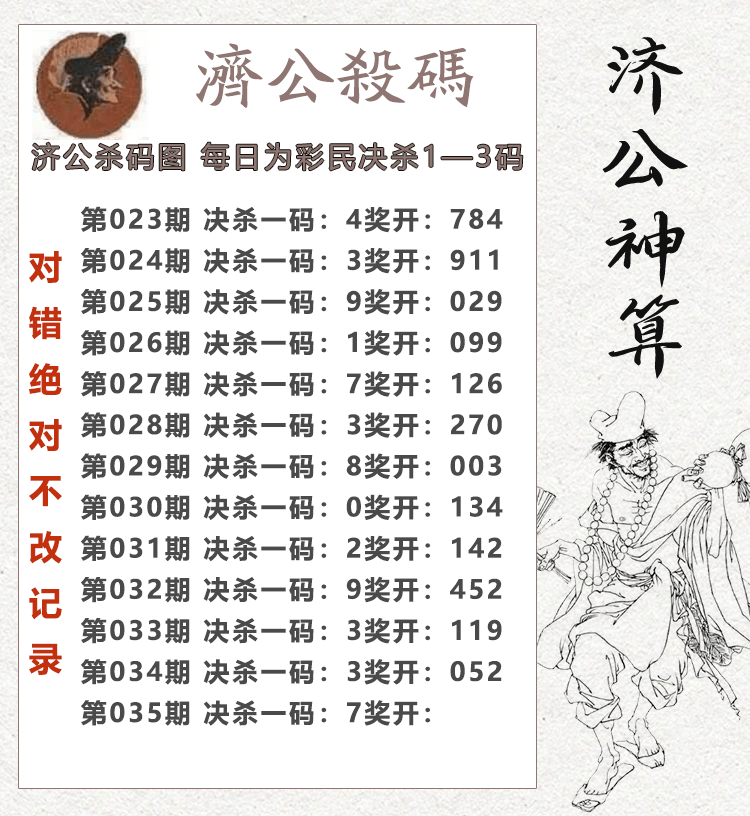 濟公殺碼
济公杀码图 每日为彩民决杀1—3码
第023期 决杀一码：4奖开：784
第024期 决杀一码：3奖开：911
第025期 决杀一码：9奖开：029
第026期 决杀一码：1奖开：099
第027期 决杀一码：7奖开：126
第028期 决杀一码：3奖开：270
第029期 决杀一码：8奖开：003
第030期 决杀一码：0奖开：134
第031期 决杀一码：2奖开：142
第032期 决杀一码：9奖开：452
第033期 决杀一码：3奖开：119
第034期 决杀一码：3奖开：052
第035期 决杀一码：7奖开：
对错绝对不改记录
济公神算